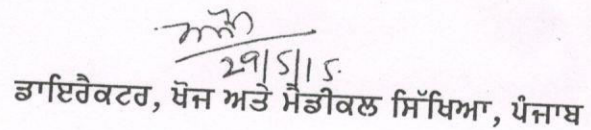 29/5/15.
ਡਾਇਰੈਕਟਰ, ਖੋਜ ਅਤੇ ਮੈਡੀਕਲ ਸਿੱਖਿਆ, ਪੰਜਾਬ